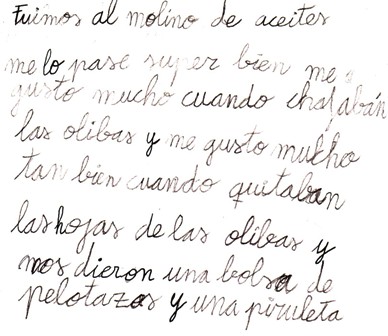 Fuimos al molino de aceites
me lo pase super bien me
gusto mucho cuando chafabán
las olibas y me gusto mucho
tan bien cuando quitaban
las hojas de las olibas y
nos dieron una bolsa de
pelotazos y una piruleta